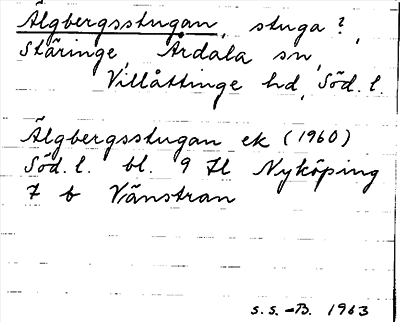 Älgbergsstugan, stuga?
Stäringe, Årdala sn,
Villåttinge hd, Söd. l.
Älgbergsstugan ek (1960)
Söd. l. bl. 9 Il Nyköping
7 b Vänstran
S.S.-B. 1963